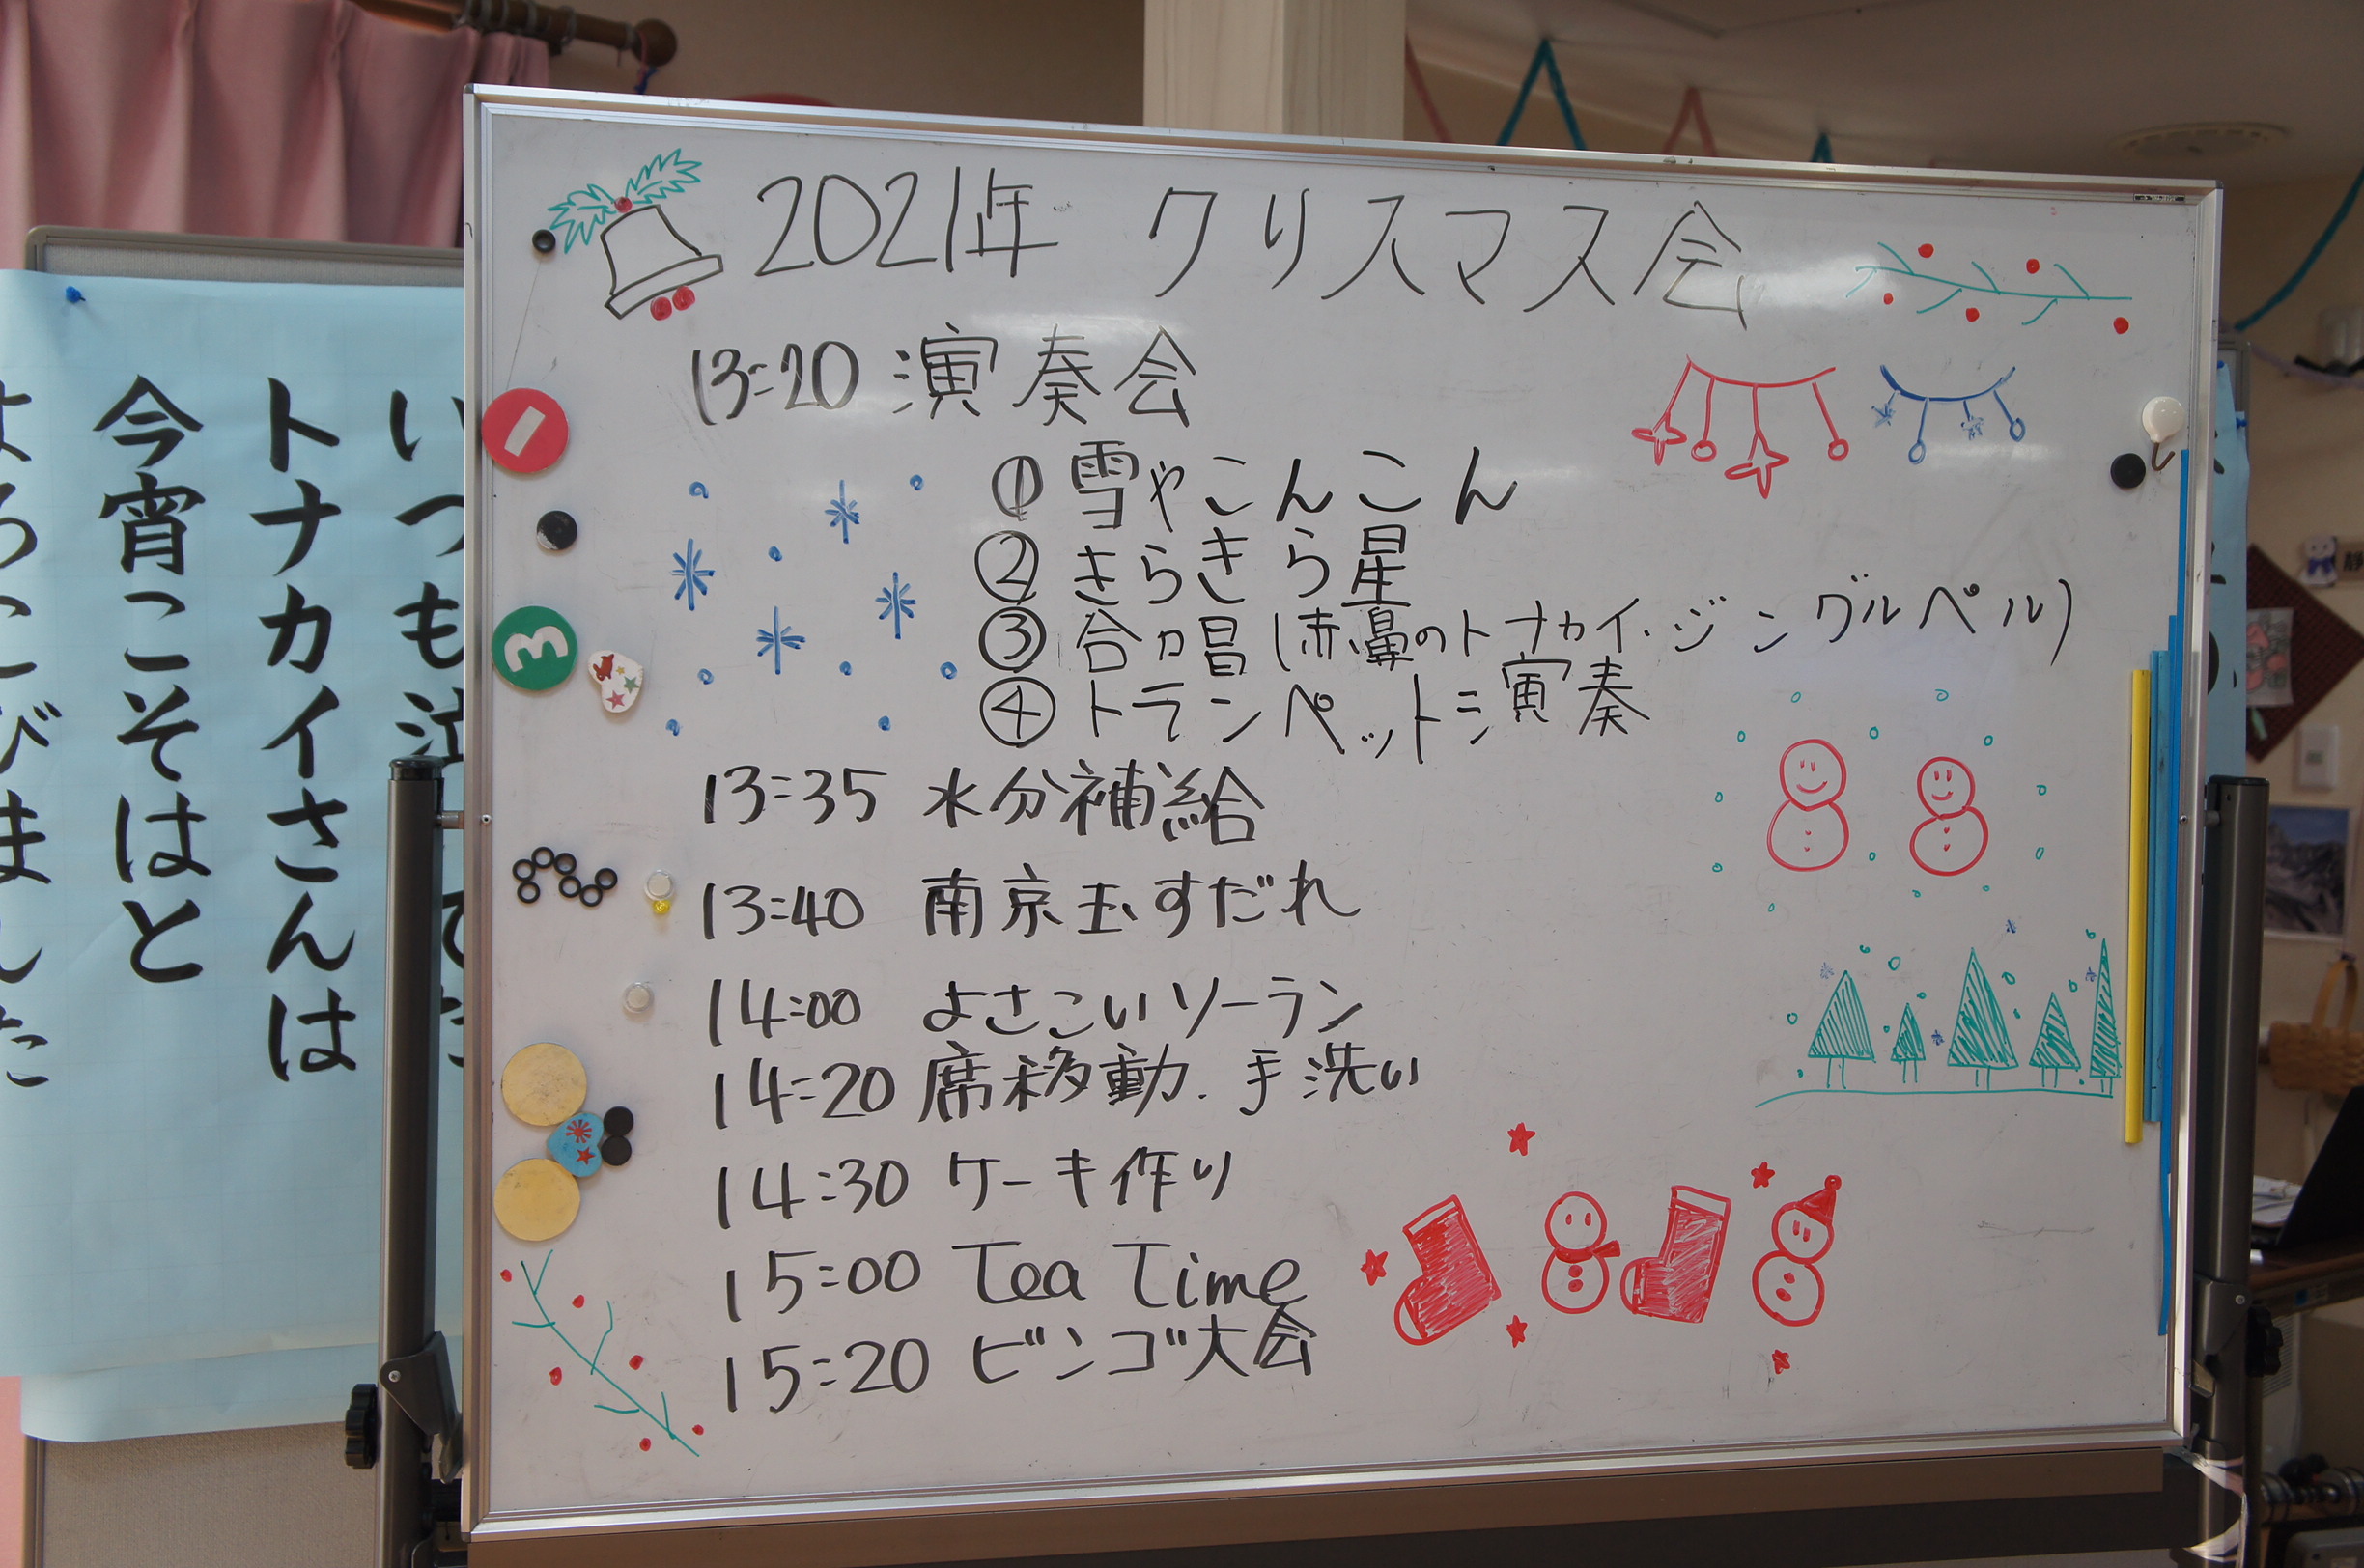 2021年 クリスマス会
13:20 演奏会
① 雪やこんこん
② きらきら星
③ 合唱(赤鼻のトナカイ・ジングルベル)
④ トランペット演奏
13:35 水分補給
13:40 南京玉すだれ
14:00 よさこいソーラン
14:20 席移動.手洗い
14:30 ケーキ作り
15:00 Tea Time
15:20 ビンゴ大会
1
3
いつも泣てた
トナカイさんは
今宵こそはと
よろこびました